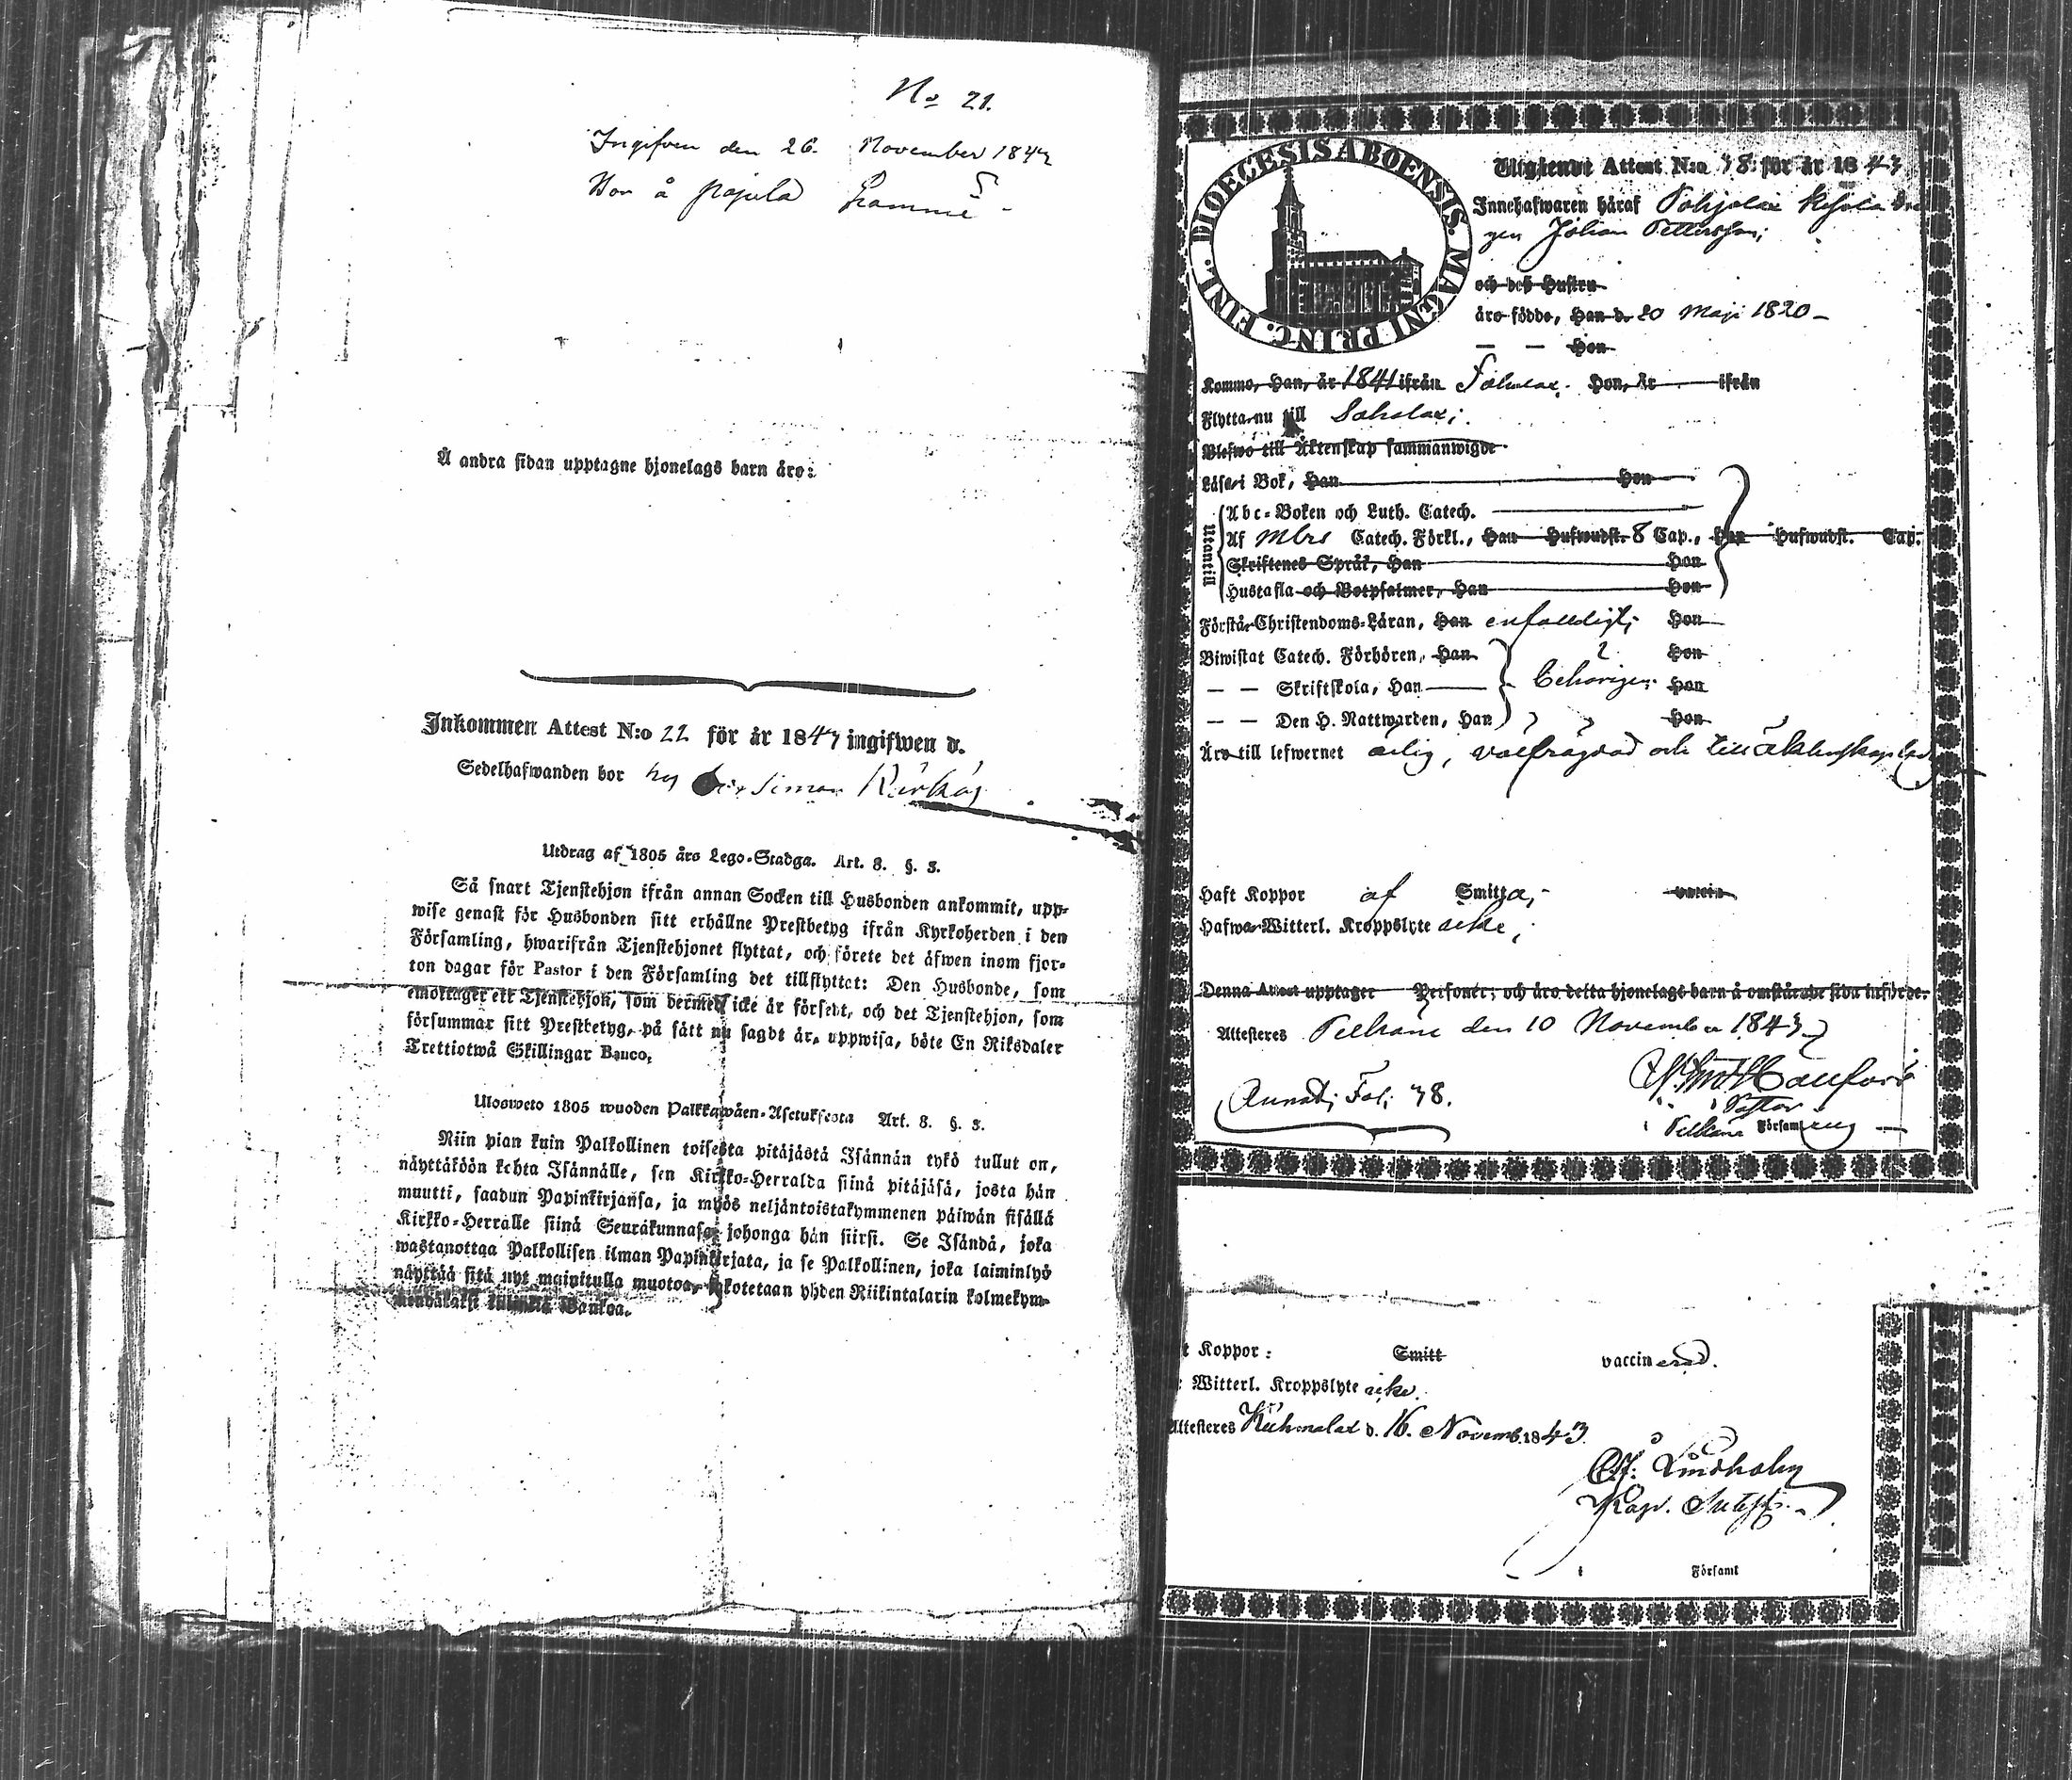 No 21.
Ingifven den 26. November 1843
Bor å Pajula
Å andra sidan upptagne hjonelags barn äro:
Inkommen Attest N:o 22 för år 1843 ingifwen d.
Sedelhafwanden bor hos Simon
Utdrag af 1805 års Lego-Stadga. Art. 8. §. 3.
Så snart Tjenstehjon ifrån annan Socken till Husbonden ankommit, upp-
wise genast för Husbonden sitt erhållne Prestbetyg ifrån Kyrkoherden i den
Församling, hwarifrån Tjenstehjonet flyttat, och förete det äfwen inom fjor-
ton dagar för Pastor i den Församling det tillflyttat: Den Husbonde, som
emottager ett Tjenstehjon, som dermed icke är försedt, och det Tjenstehjon, som
försummar sitt Prestbetyg, på sätt nu sagdt är, uppwisa, böte En Riksdaler
Trettiotwå Skillingar Banco.
Ulosweto 1805 wuoden Palkkawäen-Asetuksesta Art. 8. §. 3.
Niin pian kuin Palkollinen toisesta pitäjästä Isännän tykö tullut on,
näyttäköön kohta Isännälle, sen Kirkko-Herralda siinä pitäjäsä, josta hän
muutti, saadun Papinkirjansa, ja myös neljäntoistakymmenen päiwän sisällä
Kirkko-Herralle siinä Seurakunnasa johonga hän siirsi. Se Isändä, joka
wastanottaa Palkollisen ilman Papinkirjata, ja se Palkollinen, joka laiminlyö
näyttää sitä nyt mainitulla muotoa, sakotetaan yhden Riikintalarin kolmekym-
mendäkaksi killingiä Bankoa.
DIOECESIS ABOENSIS. MAGNI PRINC. FINL.
Utgifwet Attest N:o 78 för år 1843
Innehafwaren häraf Pohjalax
gen Johan Pettersson;
och deß Hustru
äro födde, Han d. 20 Maji 1820
— — Hon
Kommo, Han, år 1841 ifrån Hon, år ifrån
Flytta nu till Sahalax;
Blefwo till Äktenskap sammanwigde
Läsa i Bok, Han Hon
Utantill
Abc-Boken och Luth. Catech.
Af Mbrs Catech. Förkl., Han Hufwudst. 8 Cap., Hon Hufwudst. Cap.
Skriftenes Språk, Han Hon
Hustafla och Botpsalmer, Han Hon
Förstå Christendoms-Läran, Han enfaldigt; Hon
Biwistat Catech. Förhören, Han Hon
— — Skriftskola, Han behörigen Hon
— — Den H. Nattwarden, Han Hon
Äro till lefwernet ärlig, välfrägdad och till äktenskap
Haft Koppor af Smitta; vaccin
Hafwa Witterl. Kroppslyte icke;
Denna Attest upptager Personer; och äro detta hjonelags barn å omstående sida införde.
Attesteres Pelkäne den 10 November 1843
Annot; Fol; 78.
Pastor
Pelkäne Församling
t Koppor: Smitt vaccinerad.
Witterl. Kroppslyte icke.
Attesteres Kuhmalax d. 16. Novemb. 1843.
Lindholm
Kap.
i Församl